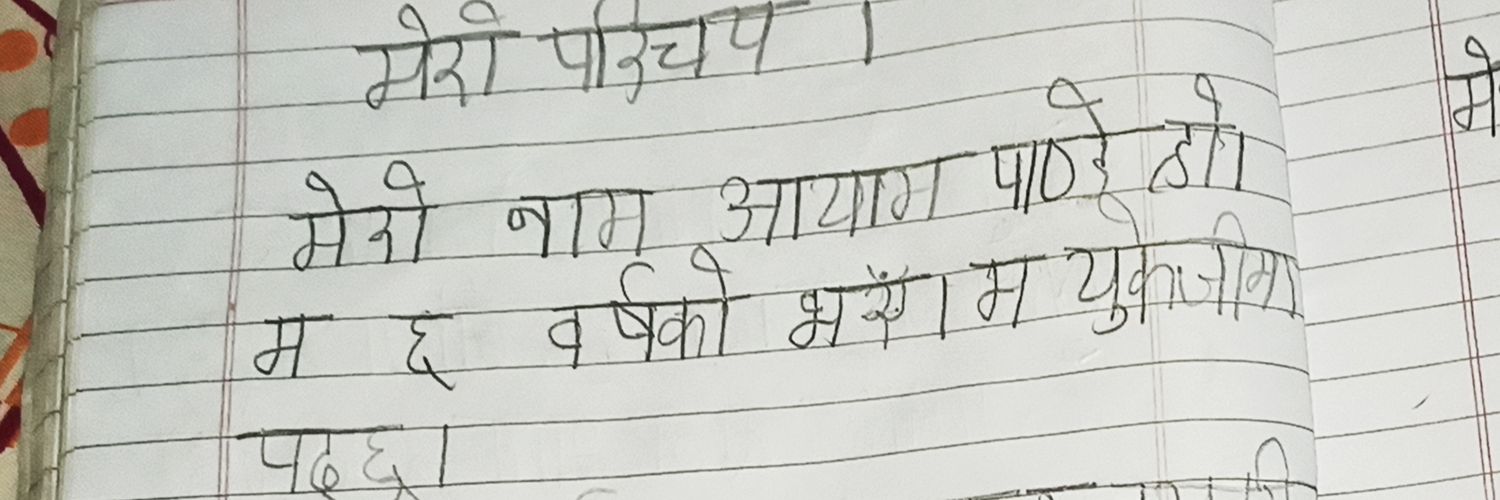 मेरो परिचय ।
मेरो नाम आयाम पाण्डे हो।
म ६ वर्षको भएँ। म युकेजीमा
पढ्छु।